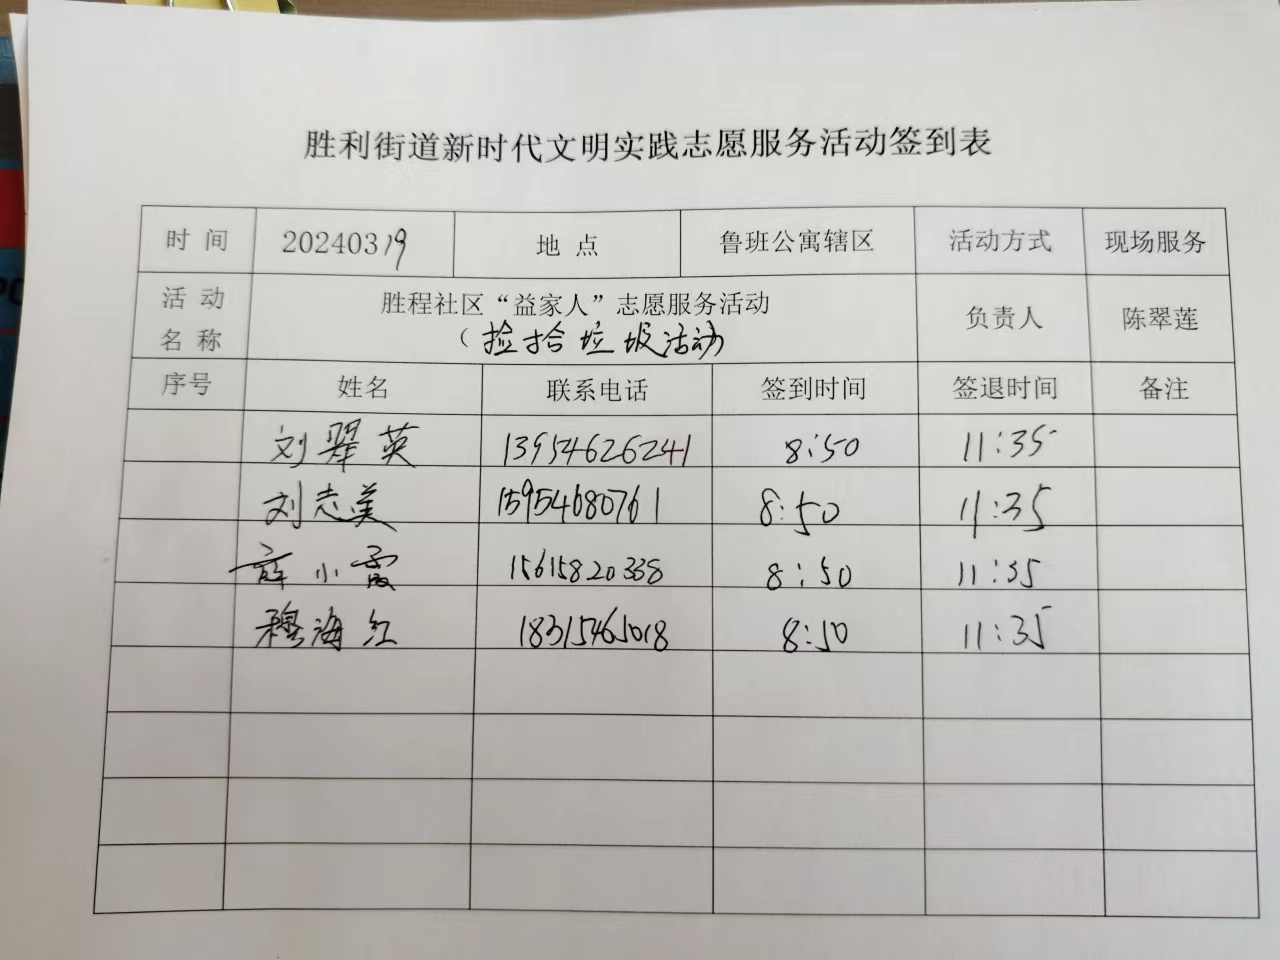 胜利街道新时代文明实践志愿服务活动签到表
时 间 20240319 地 点 鲁班公寓辖区 活动方式 现场服务
活 动 名 称 胜程社区“益家人”志愿服务活动 负责人 陈翠莲
（捡拾垃圾活动
序号 姓名 联系电话 签到时间 签退时间 备注
刘翠英 13954626241 8:50 11:35
刘志美 15954680761 8:50 11:35
薛小霞 15615820338 8:50 11:35
穆海红 18315465018 8:50 11:35